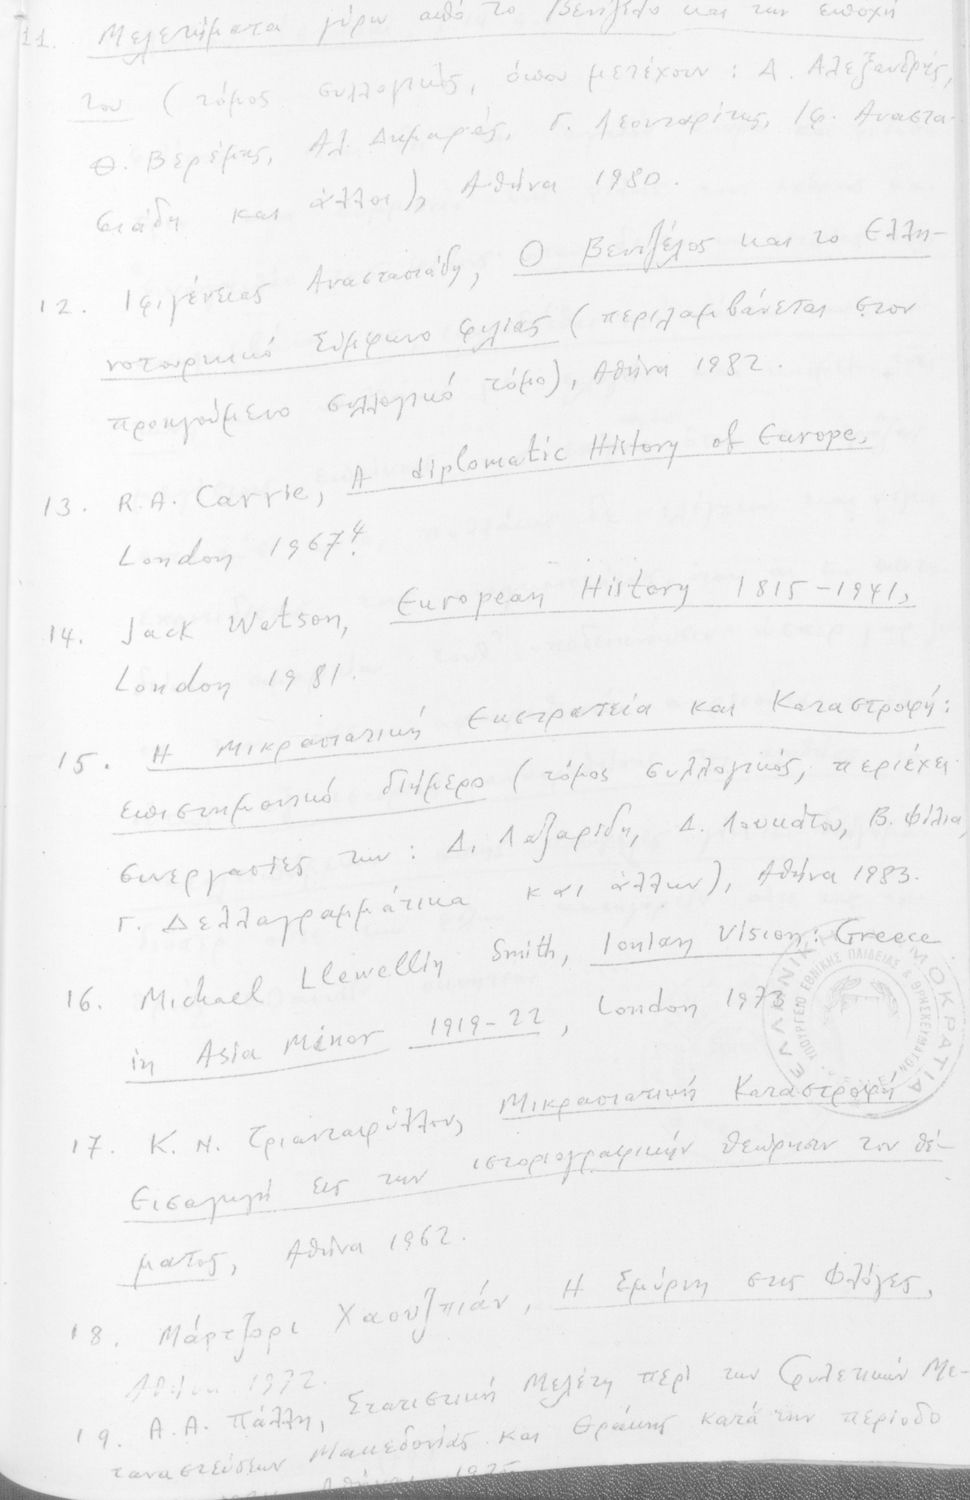 11. Μελετήματα γύρω από το Βενιζέλο και την εποχή
του (τόμος συλλογικός, όπου μετέχουν: Δ. Αλεξανδρής,
Θ. Βερέμης, Αλ. Δημαράς, Γ. Λεονταρίτης, Ιφ. Αναστα-
σιάδη και άλλοι), Αθήνα 1980.
12. Ιφιγένειας Αναστασιάδη, Ο Βενιζέλος και το Ελλη-
νοτουρκικό Σύμφωνο φιλίας (περιλαμβάνεται στον
προηγούμενο συλλογικό τόμο), Αθήνα 1982.
13. R.A. Carrie, A diplomatic History of Europe,
London 1967⁴.
14. Jack Watson, European History 1815-1941,
London 1981.
15. Η Μικρασιατική Εκστρατεία και Καταστροφή:
επιστημονικό διήμερο (τόμος συλλογικός, περιέχει
συνεργασίες των: Δ. Λαζαρίδη, Δ. Λουκάτου, Β. Φίλια,
Γ. Δελλαγραμμάτικα και άλλων), Αθήνα 1983.
16. Michael Llewellin Smith, Ionian Vision: Greece
in Asia Minor 1919-22, London 1973
ΕΛΛΗΝΙΚΗ ΔΗΜΟΚΡΑΤΙΑ
ΥΠΟΥΡΓΕΙΟ ΕΘΝΙΚΗΣ ΠΑΙΔΕΙΑΣ & ΘΡΗΣΚΕΥΜΑΤΩΝ
17. Κ. Ν. Τριανταφύλλου, Μικρασιατική Καταστροφή
Εισαγωγή εις την ιστοριογραφικήν θεώρησιν του θέ-
ματος, Αθήνα 1962.
18. Μάρτζορι Χαουζπιάν, Η Σμύρνη στις Φλόγες,
Αθήνα 1972.
19. Α.Α. Πάλλη, Στατιστική Μελέτη περί των Φυλετικών Με-
ταναστεύσεων Μακεδονίας και Θράκης κατά την περίοδο
Αθήναι 1925